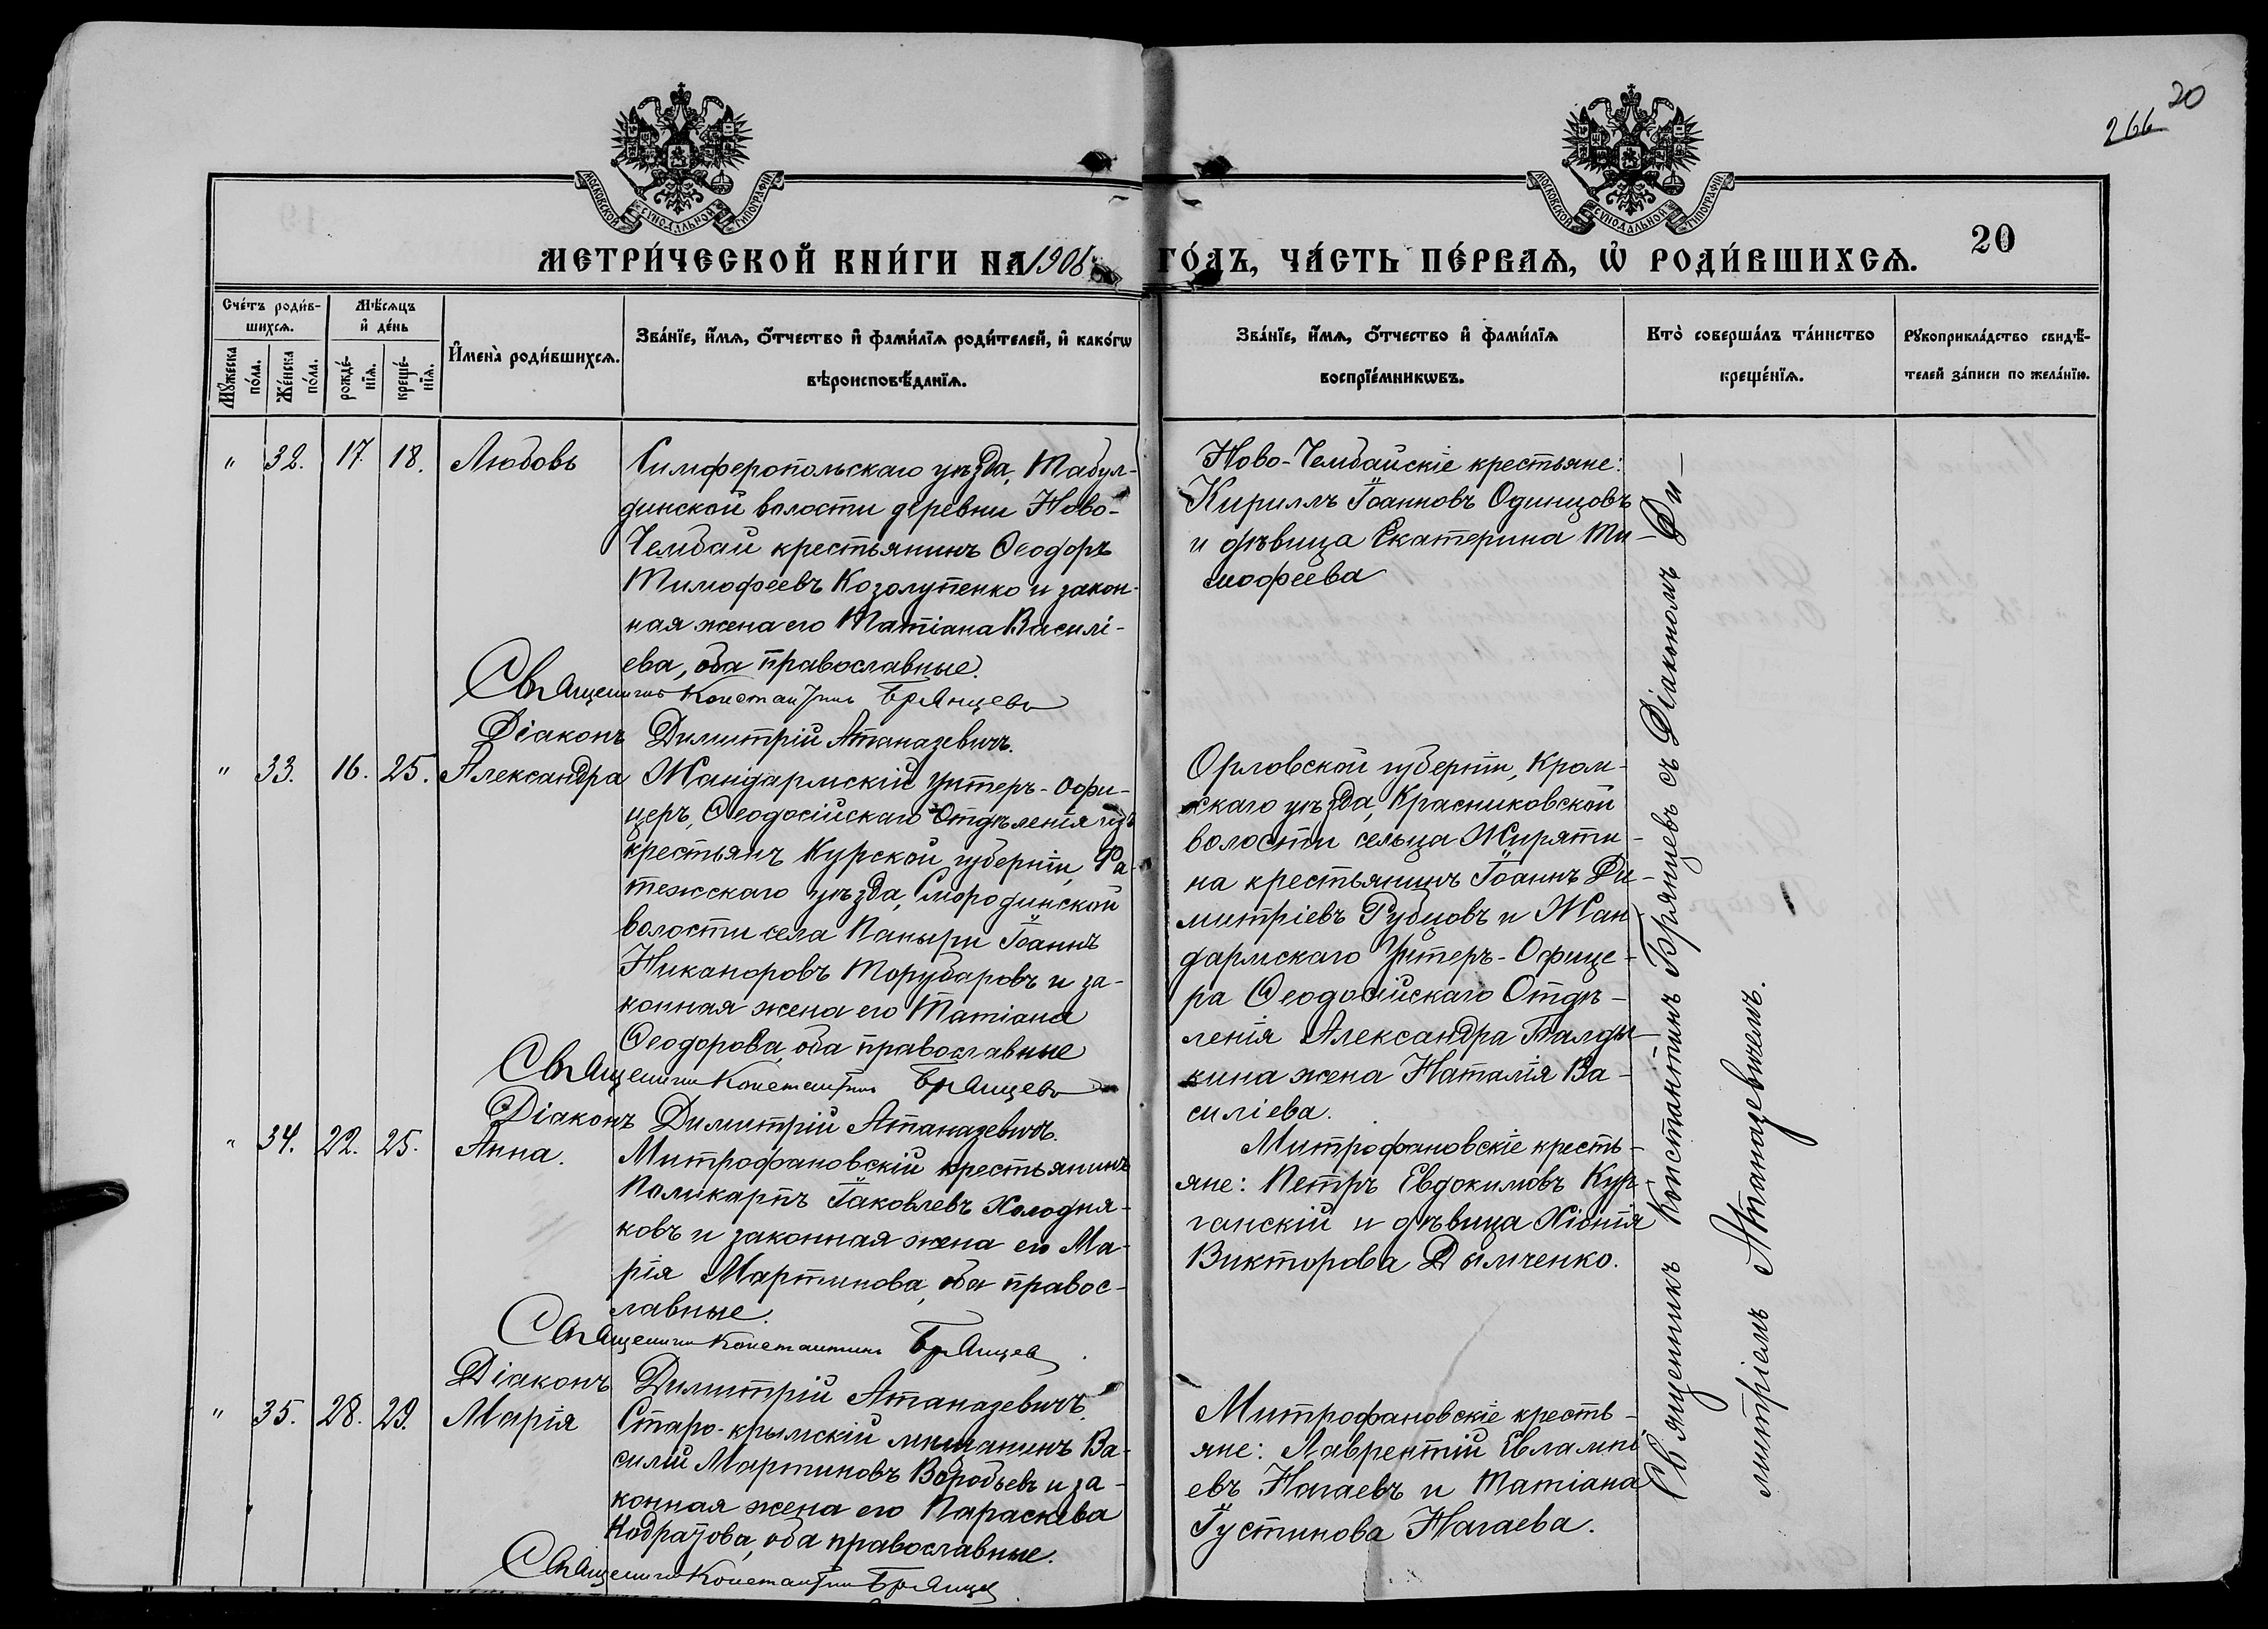 266 20
МОСКОВСКОЙ СУНОДАЛЬНОЙ ТИПОГРАФІИ
МОСКОВСКОЙ СУНОДАЛЬНОЙ ТИПОГРАФІИ
МЕТРИ́ЧЕСКОЙ КНИ́ГИ НА 1906
ГО́ДЪ, ЧА́СТЬ ПЕ́РВАѦ, Ѡ҆ РОДИ́ВШИХСѦ. 20
Сче́тъ роди́в-
шихсѧ.
Мꙋ́жеска по́ла.
Же́нска по́ла.
Мѣ́сѧцъ
и҆ де́нь
рожде́-
нїѧ.
креще́-
нїѧ.
И҆мена̀ роди́вшихсѧ.
Зва́нїе, и҆́мѧ, ѻ҆́тчество и҆ фами́лїѧ роди́телей, и҆ како́гѡ
вѣроисповѣ́данїѧ.
Зва́нїе, и҆́мѧ, ѻ҆́тчество и҆ фами́лїѧ
воспрїе́мникѡвъ.
Кто̀ соверша́лъ та́инство
креще́нїѧ.
Рꙋкоприкла́дство свидѣ́-
телей за́писи по жела́нїю.
" 32. 17. 18. Любовь
Симферопольскаго уѣзда, Табул-
динской волости деревни Ново-
Чембай крестьянинъ Ѳеодоръ
Тимофеевъ Козолупенко и закон-
ная жена его Татіана Василі-
ева, оба православные.
Священникъ Константинъ Брянцевъ
Діаконъ Димитрій Атаназевичъ.
Ново-Чембайскіе крестьяне:
Кириллъ Іоанновъ Одинцовъ
и дѣвица Екатерина Ти-
мофеева
" 33. 16. 25. Александра
Жандармскій Унтеръ-Офи-
церъ, Ѳеодосійскаго Отдѣленія изъ
крестьянъ Курской губерніи, Фа-
тежскаго уѣзда, Смородинской
волости села Поныри Іоаннъ
Никаноровъ Торубаровъ и за-
конная жена его Татіана
Ѳеодорова, оба православные
Священникъ Константинъ Брянцевъ
Діаконъ Димитрій Атаназевичъ.
Орловской губерніи, Кром-
скаго уѣзда, Красниковской
волости сельца Жиряти-
на крестьянинъ Іоаннъ Ди-
митріевъ Рубцовъ и Жан-
дармскаго Унтеръ-Офице-
ра Ѳеодосійскаго Отдѣ-
ленія Александра Балды-
кина жена Наталія Ва-
силіева.
" 34. 22. 25. Анна.
Митрофановскій крестьянинъ
Поликарпъ Іаковлевъ Холодня-
ковъ и законная жена его Ма-
рія Мартинова, оба правос-
лавные.
Священникъ Константинъ Брянцевъ
Діаконъ Димитрій Атаназевичъ.
Митрофановскіе кресть-
яне: Петръ Евдокимовъ Кур-
ганскій и дѣвица Хіонія
Викторова Дымченко.
" 35. 28. 29. Марія
Старо-крымскій мѣщанинъ Ва-
силій Мартиновъ Воробьевъ и за-
конная жена его Параскева
Кодратова, оба православные.
Священникъ Константинъ Брянцевъ
Митрофановскіе кресть-
яне: Лаврентій Евлампі-
евъ Нагаевъ и Татіана
Іустинова Нагаева.
Священникъ Константинъ Брянцевъ съ Діакономъ Ди-
митріемъ Атаназевичемъ.